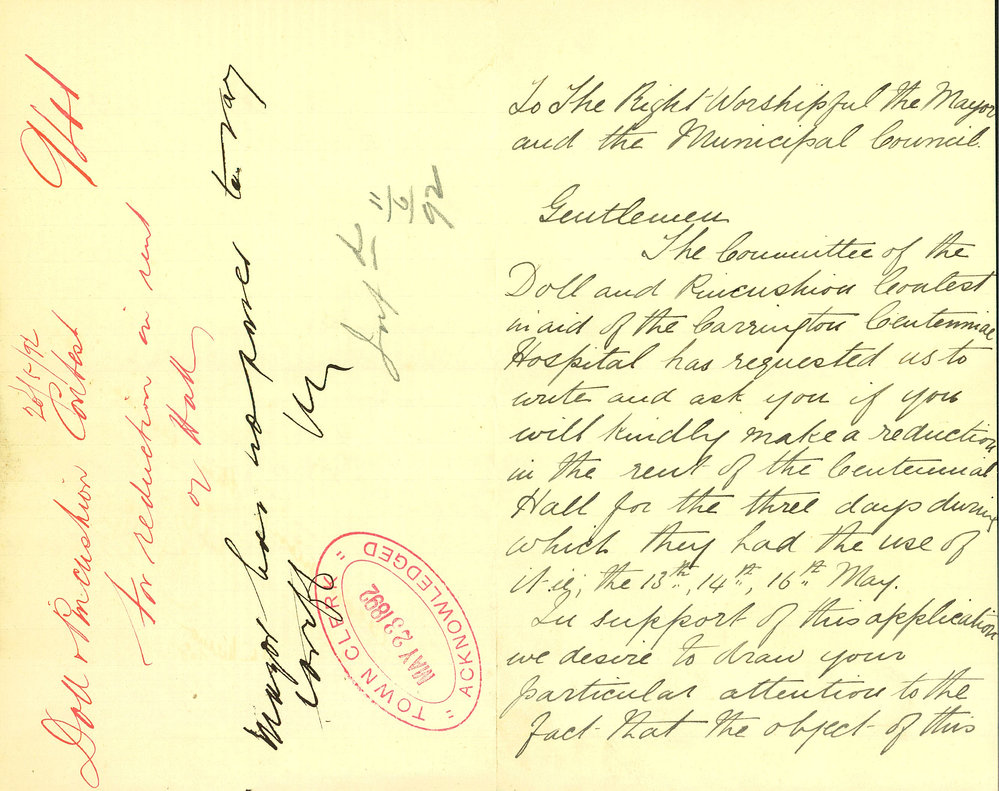 941
26/5/92
Doll & Pincushion Contest
for reduction in rent
of Hall
Mayor has no power to vary
Inf
11/6/92
" TOWN CLERK "
MAY 23 1892
ACKNOWLEDGED
To The Right Worshipful the Mayor
and the Municipal Council.
Gentlemen
The Committee of the
Doll and Pincushion Contest
in aid of the Carrington Centennial
Hospital has requested us to
write and ask you if you
will kindly make a reduction
in the rent of the Centennial
Hall for the three days during
which they had the use of
it. ie; the 13th, 14th, 16th May.
In support of this application
we desire to draw your
particular attention to the
fact that the object of this